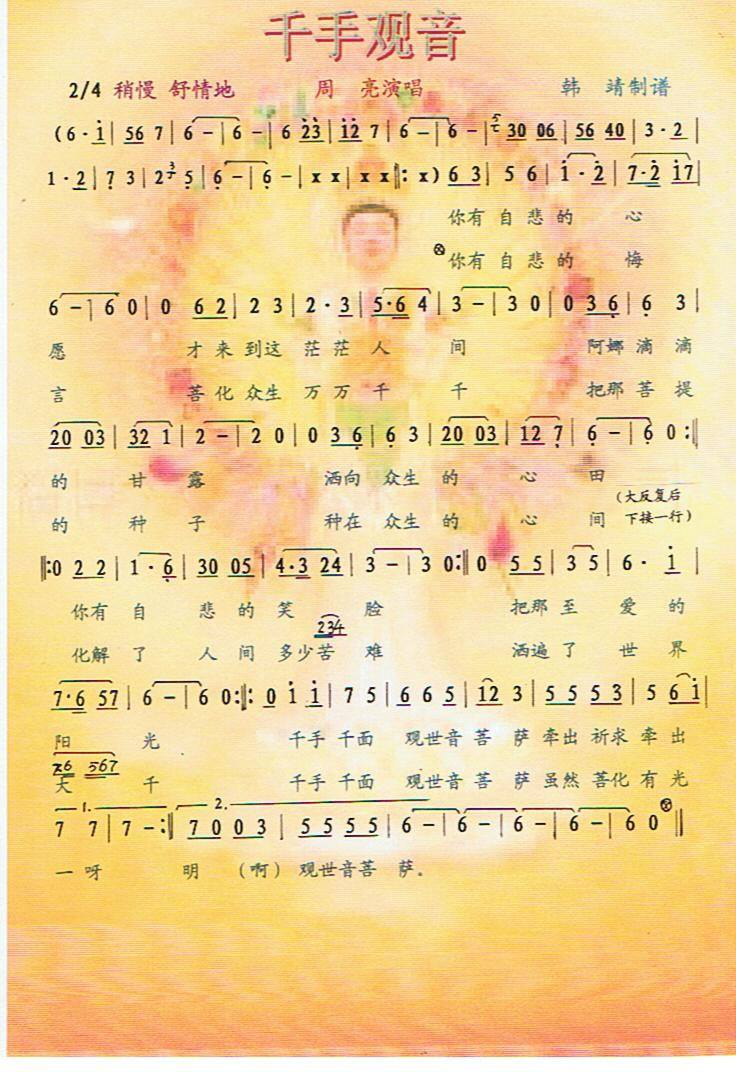 千手观音
2/4 稍慢 舒情地 周 亮演唱 韩 靖制谱
(6·i| 56 7| 6 -| 6 -| 6 23| 12 7| 6 -| 6 -| 30 06| 56 40| 3·2|
1·2| 7 3| 2 5| 6 -| 6 -| x x| x x|: x) 6 3| 5 6| i·2| 7·2 i7|
你有 自 悲 的 心
你有 自 悲 的 悔
6 -| 6 0| 0 6 2| 2 3| 2·3| 5·6 4| 3 -| 3 0| 0 3 6| 6 3|
愿 才 来 到这 茫 茫 人 间 阿娜 滴 滴
言 菩 化 众生 万 万 千 千 把那 菩 提
20 03| 32 1| 2 -| 2 0| 0 3 6| 6 3| 20 03| 12 7| 6 -| 6 0:|
的 甘 露 洒向 众生 的 心 田
(大反复后
的 种 子 种在 众生 的 心 间 下接一行)
|:0 2 2| 1·6| 30 05| 4·3 24| 3 -| 3 0:| 0 5 5| 3 5| 6· i|
你有 自 悲 的 笑 脸 把那 至 爱 的
234
化解 了 人 间 多少苦 难 洒遍 了 世 界
7·6 57| 6 -| 6 0:|: 0 i i| 7 5| 6 6 5| 12 3| 5 5 5 3| 5 6 i|
阳 光 千手 千面 观世音 菩 萨 牵出 祈求 牵 出
76 567
大 千 千手 千面 观世音 菩 萨 虽然 菩化 有 光
1. 2.
7 7| 7 -:| 7 0 0 3| 5 5 5 5| 6 -| 6 -| 6 -| 6 -| 6 0||
一 呀 明 (啊) 观世音菩 萨。